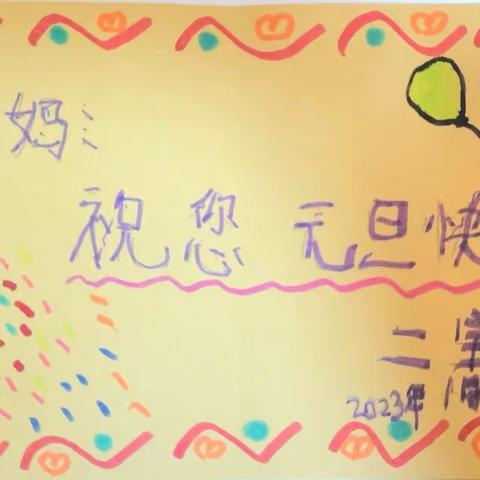 妈:
祝您 元旦快
二
2023年 1月